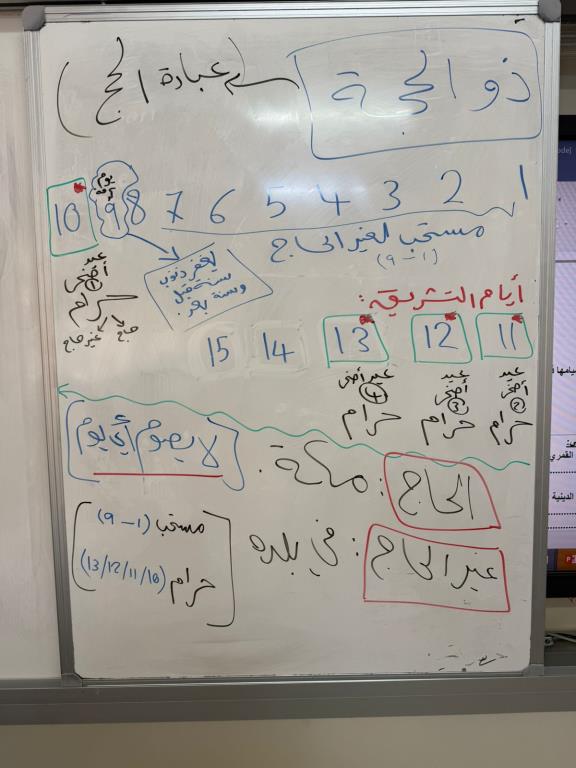 ذو الحجة ← (عبادة الحج)
1 2 3 4 5 6 7 8 9 10
يوم عرفة
مستحب لغير الحاج
(1 – 9)
يغفر ذنوب
سنة قبل
وسنة بعد
عيد
أضحى
1
حرام
حاج
غير حاج
أيام التشريق:
11 12 13 14 15
عيد
أضحى
2
حرام
عيد
أضحى
3
حرام
عيد أضحى
4
حرام
الحاج: مكة. [لا يصوم أي يوم]
غير الحاج: في بلده
مستحب (1 – 9)
حرام (10/11/12/13)